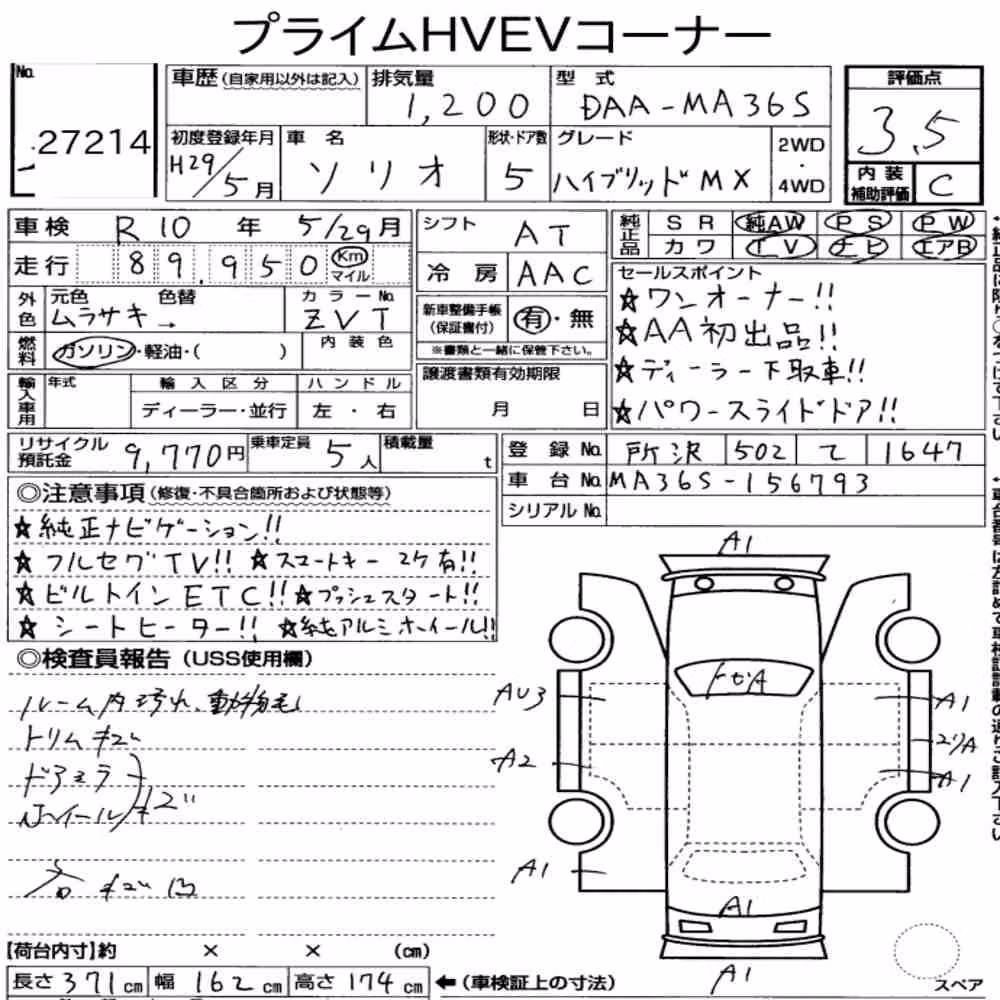 プライムHVEVコーナー
No. 27214
車歴(自家用以外は記入)
排気量 1,200
型式 DAA-MA36S
評価点 3.5
内装補助評価 C
初度登録年月 H29/5月
車名 ソリオ
形状・ドア数 5
グレード ハイブリッドMX
2WD・4WD
車検 R10年 5/29月
走行 89,950 Km マイル
外色 元色 ムラサキ → 色替
カラーNo. ZVT
内装色
燃料 ガソリン・軽油・( )
輸入車用 年式
輸入区分 ディーラー・並行
ハンドル 左・右
シフト AT
冷房 AAC
新車整備手帳(保証書付) 有・無
※書類と一緒に保管下さい。
譲渡書類有効期限
月 日
純正品 SR 純AW PS PW
カワ TV ナビ エアB
セールスポイント
☆ワンオーナー!!
☆AA初出品!!
☆ディーラー下取車!!
☆パワースライドドア!!
リサイクル預託金 9,770円
乗車定員 5人
積載量 t
登録No. 所沢 502 て 1647
車台No. MA36S-156793
シリアルNo.
◎注意事項(修復・不具合箇所および状態等)
☆純正ナビゲーション!!
☆フルセグTV!! ☆スマートキー2ケ有!!
☆ビルトインETC!! ☆プッシュスタート!!
☆シートヒーター!! ☆純アルミホイール!!
◎検査員報告(USS使用欄)
ルーム内汚れ、動物毛
トリムキズ
ドアミラ
ホイール キズ
キズ凹
A1
トビA
AU3
A1
A2
A1
A1
A1
A1
【荷台内寸】約 × × (cm)
長さ371cm 幅162cm 高さ174cm ←(車検証上の寸法)
スペア